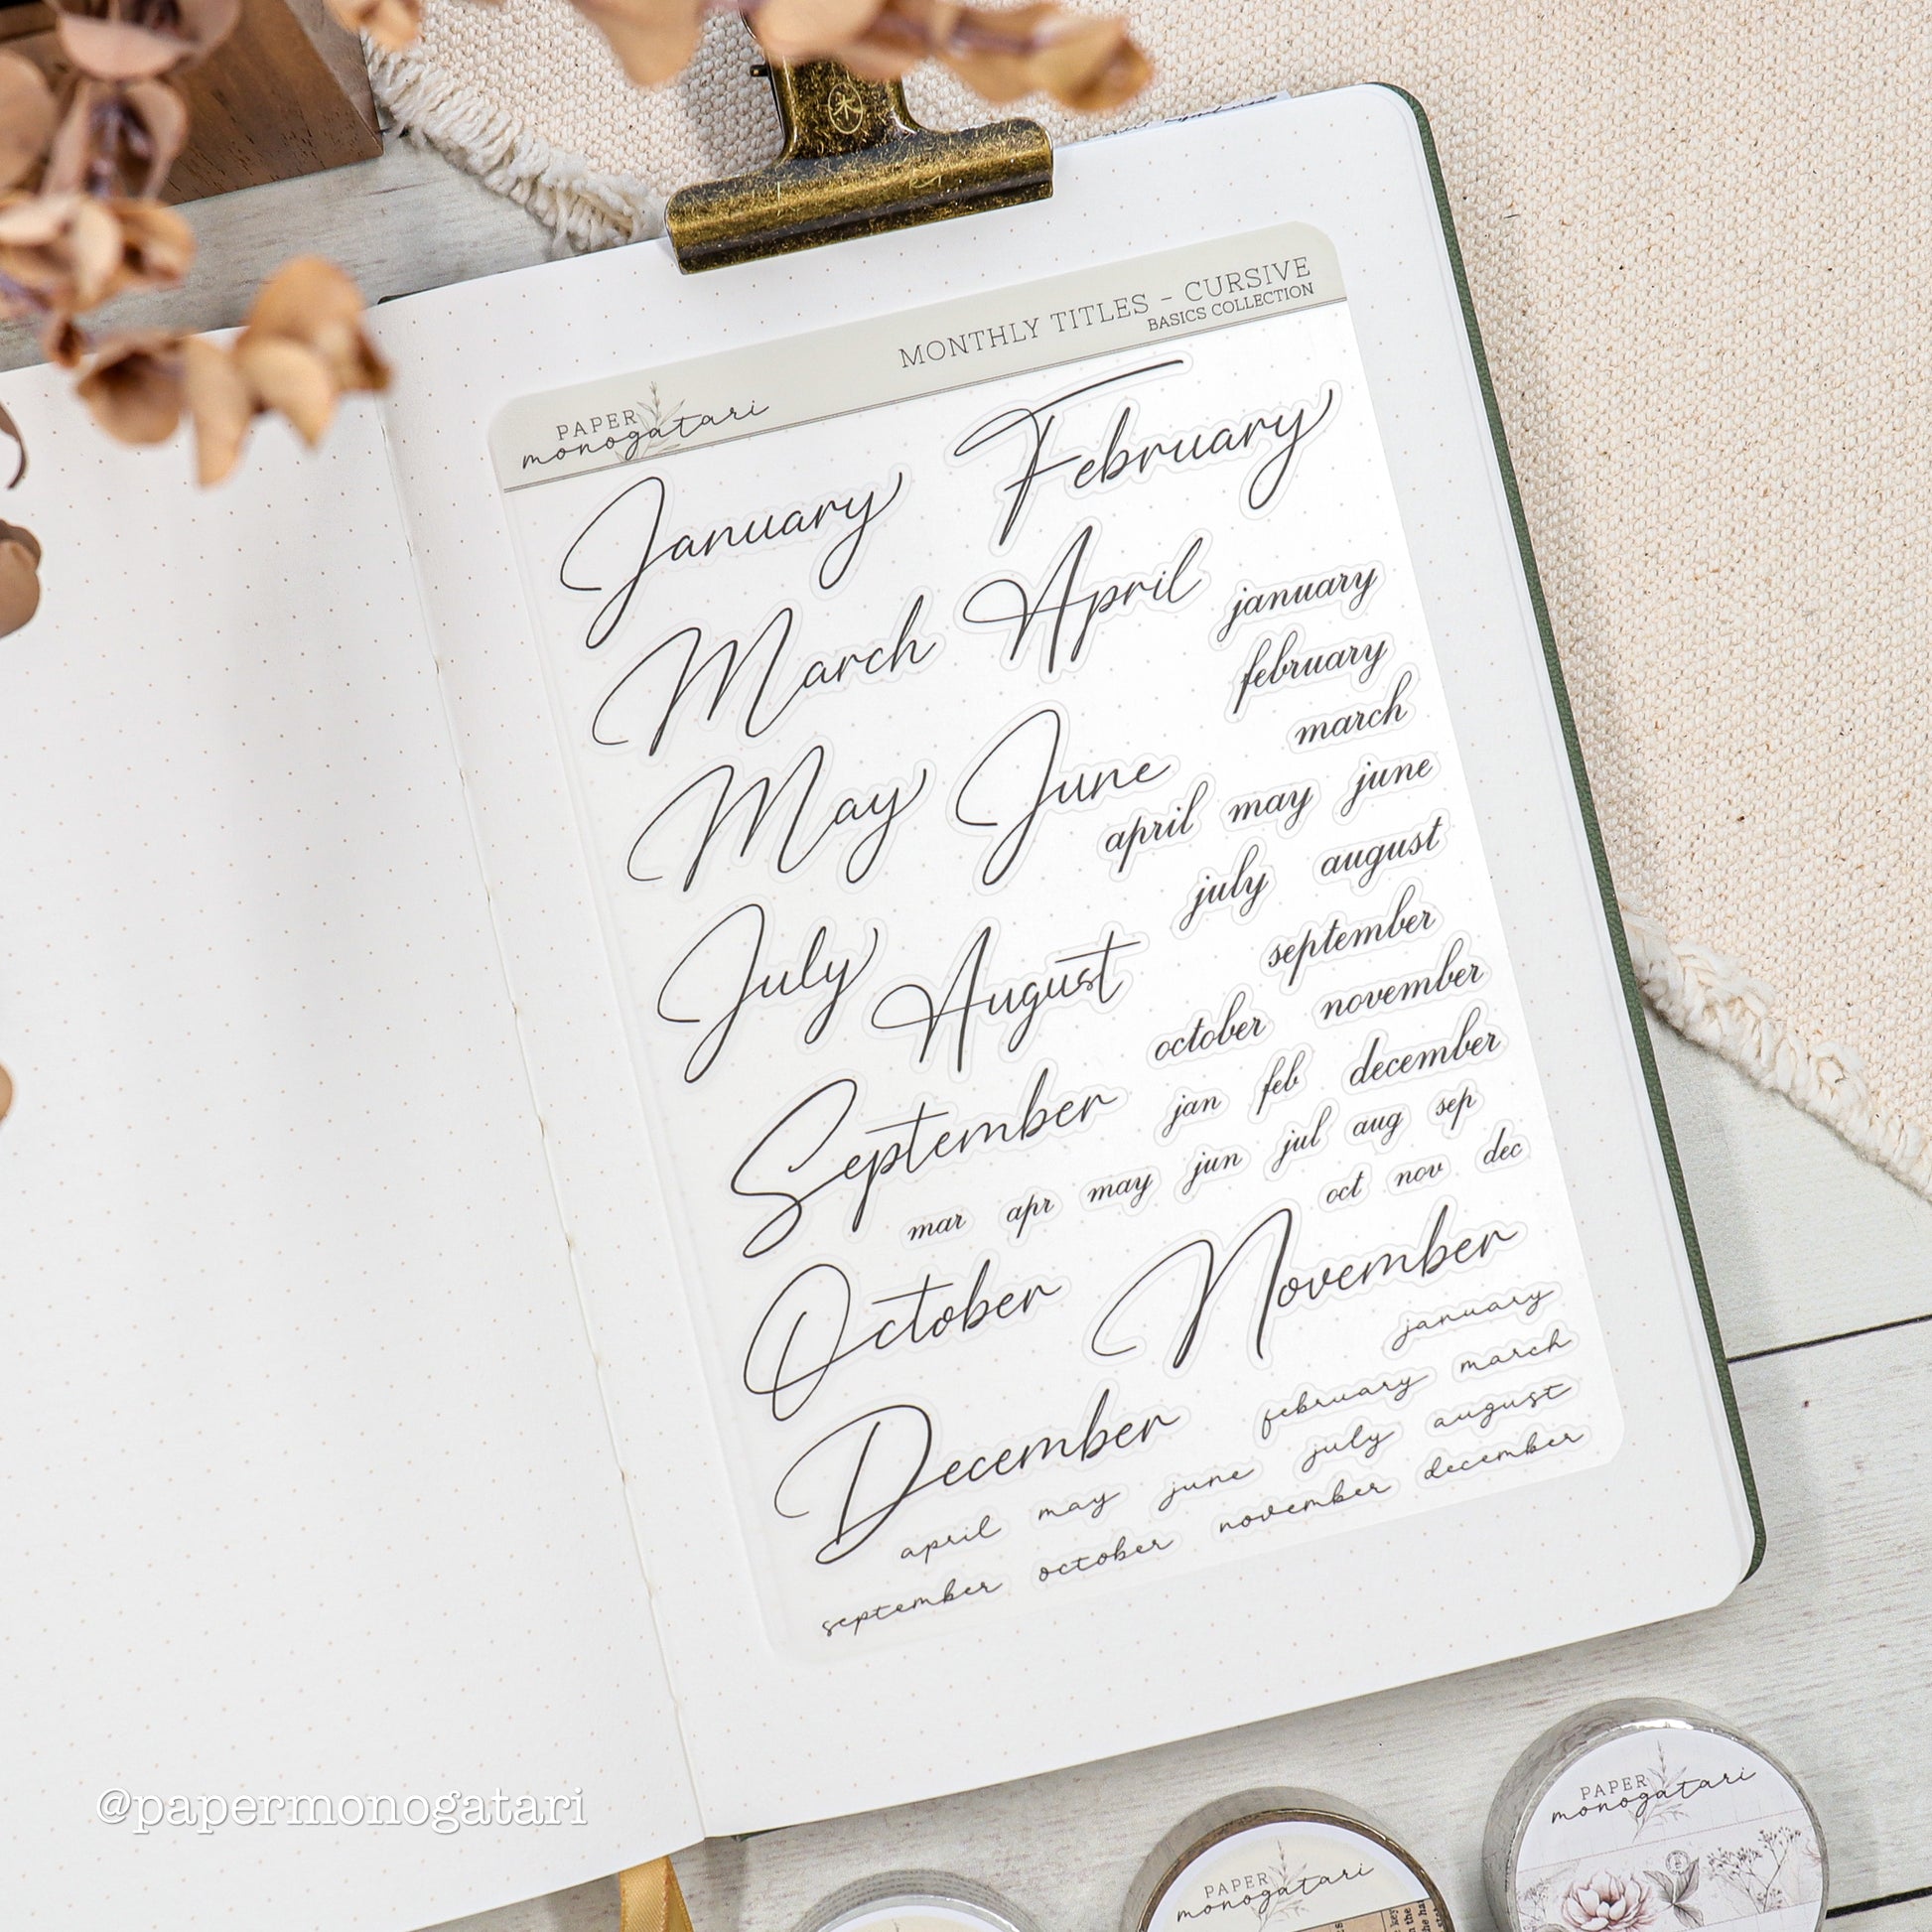 MONTHLY TITLES - CURSIVE
BASICS COLLECTION
PAPER
monogatari
January February
March April january
february
march
May June
april may june
july august
July August
september
october november
September jan feb december
mar apr may jun jul aug sep
oct nov dec
October November
january
December february march
april may june july august
september october november december
@papermonogatari
PAPER
monogatari
PAPER
monogatari